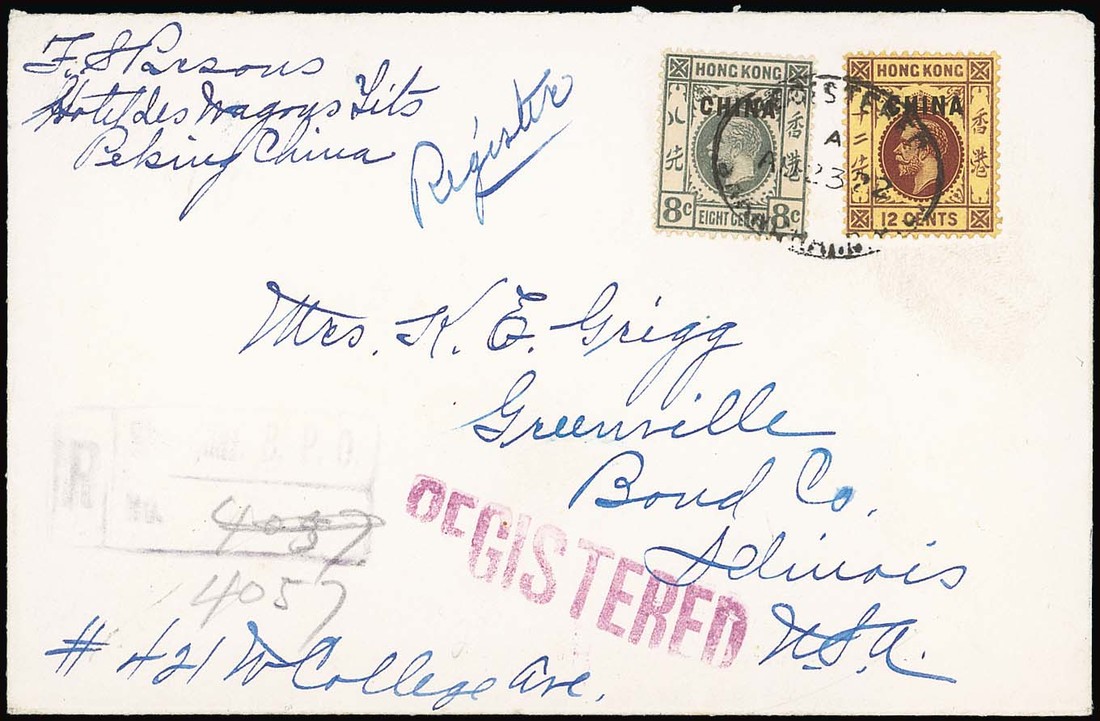 F. S Parsons
Hotel des Wagons Lits
Peking China
Register
HONG KONG
CHINA
八先
香港
8c EIGHT CENTS 8c
HONG KONG
CHINA
十二先
香港
12 CENTS
A
23
Mrs. K. E. Grigg
Greenville
Bond Co.
Illinois
U.S.A.
R
B. P. O.
4037
4057
REGISTERED
# 421 W College Ave.